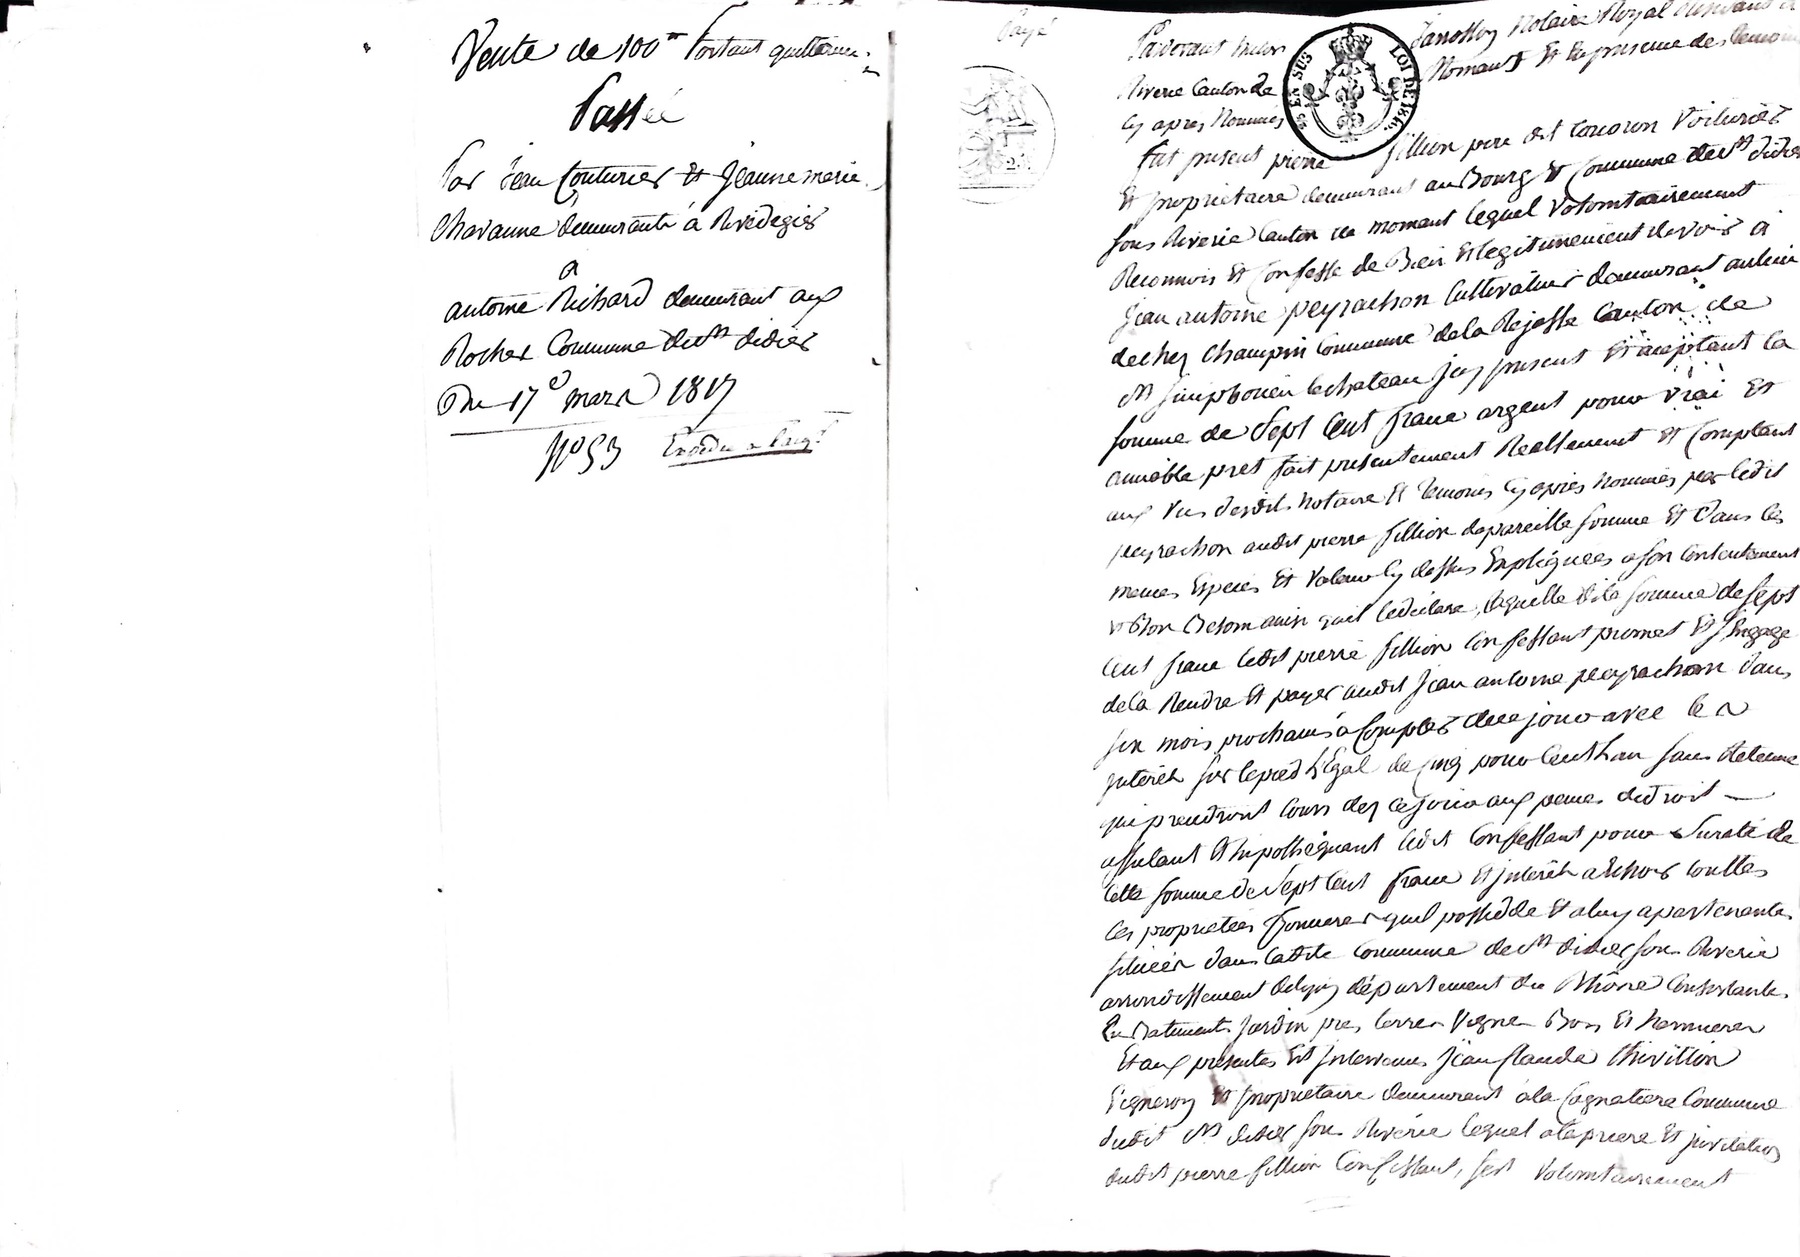 Vente de 100 ff portant quittance
Passée
Par Jean Couturier Et Jeanne marie
Chavanne demeurants à Rivedegier
a
antoine Richard demeurant aux
Rocher Commune de St didier
Du 17e mars 1817
No 53
Payé
Pardevant Janosson Notaire Royal Résident à
Riverie Canton de Mornant Et En presence des temoins
Cy après Nommés
EN SUS LOI DE 1816
25
fut present pierre fillion pere dit Couron Voiturier
Et proprietaire demeurant au Bourg Et Commune de St didier
sous Riverie Canton de mornant lequel Volontairement
Reconnois Et Confesse de Bien Et legitimement devoir à
Jean antoine peyrachon Cultivateur demeurant au lieu
de chez Champin Commune de la Rajasse Canton de
St simphorien le chateau Icy present Et aceptant la
somme de Sept Cent franc argent pour Vrai Et
amiable pret fait presentement Reellement Et Comptant
aux Vus desdits Notaire Et temoins Cy après Nommés par ledit
peyrachon audit pierre fillion de pareille somme Et dans les
memes Especes Et Valeur Cy dessus Expliquées a son Contentement
quil le déclare, laquelle dite somme de sept
Cent franc ledit pierre fillion Confessant promet Et s'Engage
de la Rendre Et payer audit Jean antoine peyrachon dans
six mois prochains à Compter de ce jour avec le
interêt sur le pied l'Egal de Cinq pour Cent l'an sans Retenue
qui prendront Cours dez ce jour aux peines de droit
affectant Et hipothéquant ledit Confessant pour Sureté de
Cette somme de Sept Cent franc Et interêt a Echoir touttes
les proprietées foncieres quil possède Et a luy apartenantes
situées dans ladite Commune de St didier sous Riverie
arrondissement de lyon département du Rhône Consistantes
En Batiments Jardin pres terres Vignes Bois Et hermieres
Et aux présentes Est Intervenu Jean Claude thivillion
Vigneron Et proprietaire demeurant à la Commune
dudit St didier sous Riverie lequel a la priere Et invitation
dudit pierre fillion Confessant, sest Volontairement